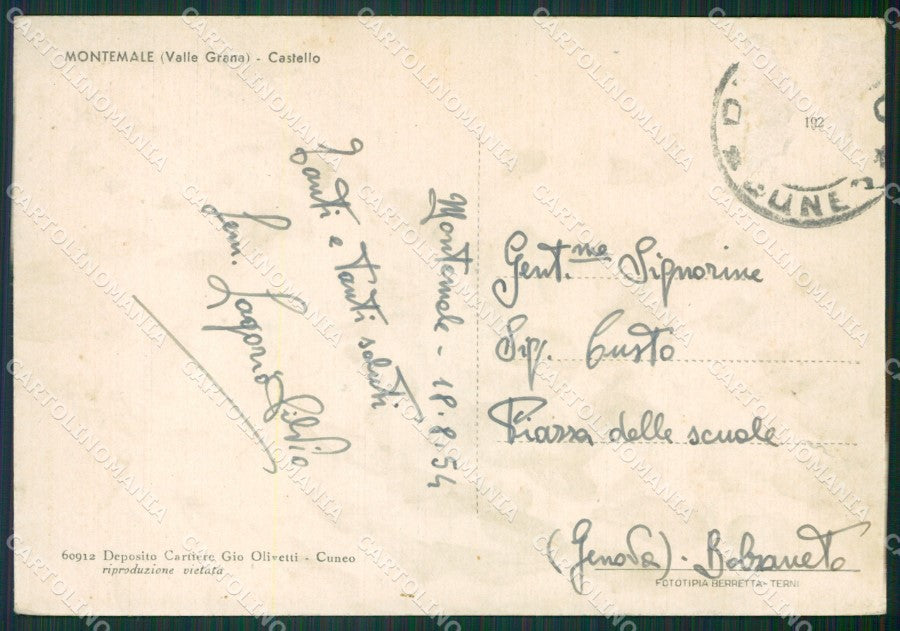 MONTEMALE (Valle Grana) - Castello
192
CUNEO
Montemale - 18.8.54
Tanti e tanti saluti
Fam. Silvio
Gent.me Signorine
Sig. Custo
Piazza delle scuole
(Genova) - Bolzaneto
60912 Deposito Cartiere Gio Olivetti - Cuneo
riproduzione vietata
FOTOTIPIA BERRETTA - TERNI
CARTOLINOMANIA